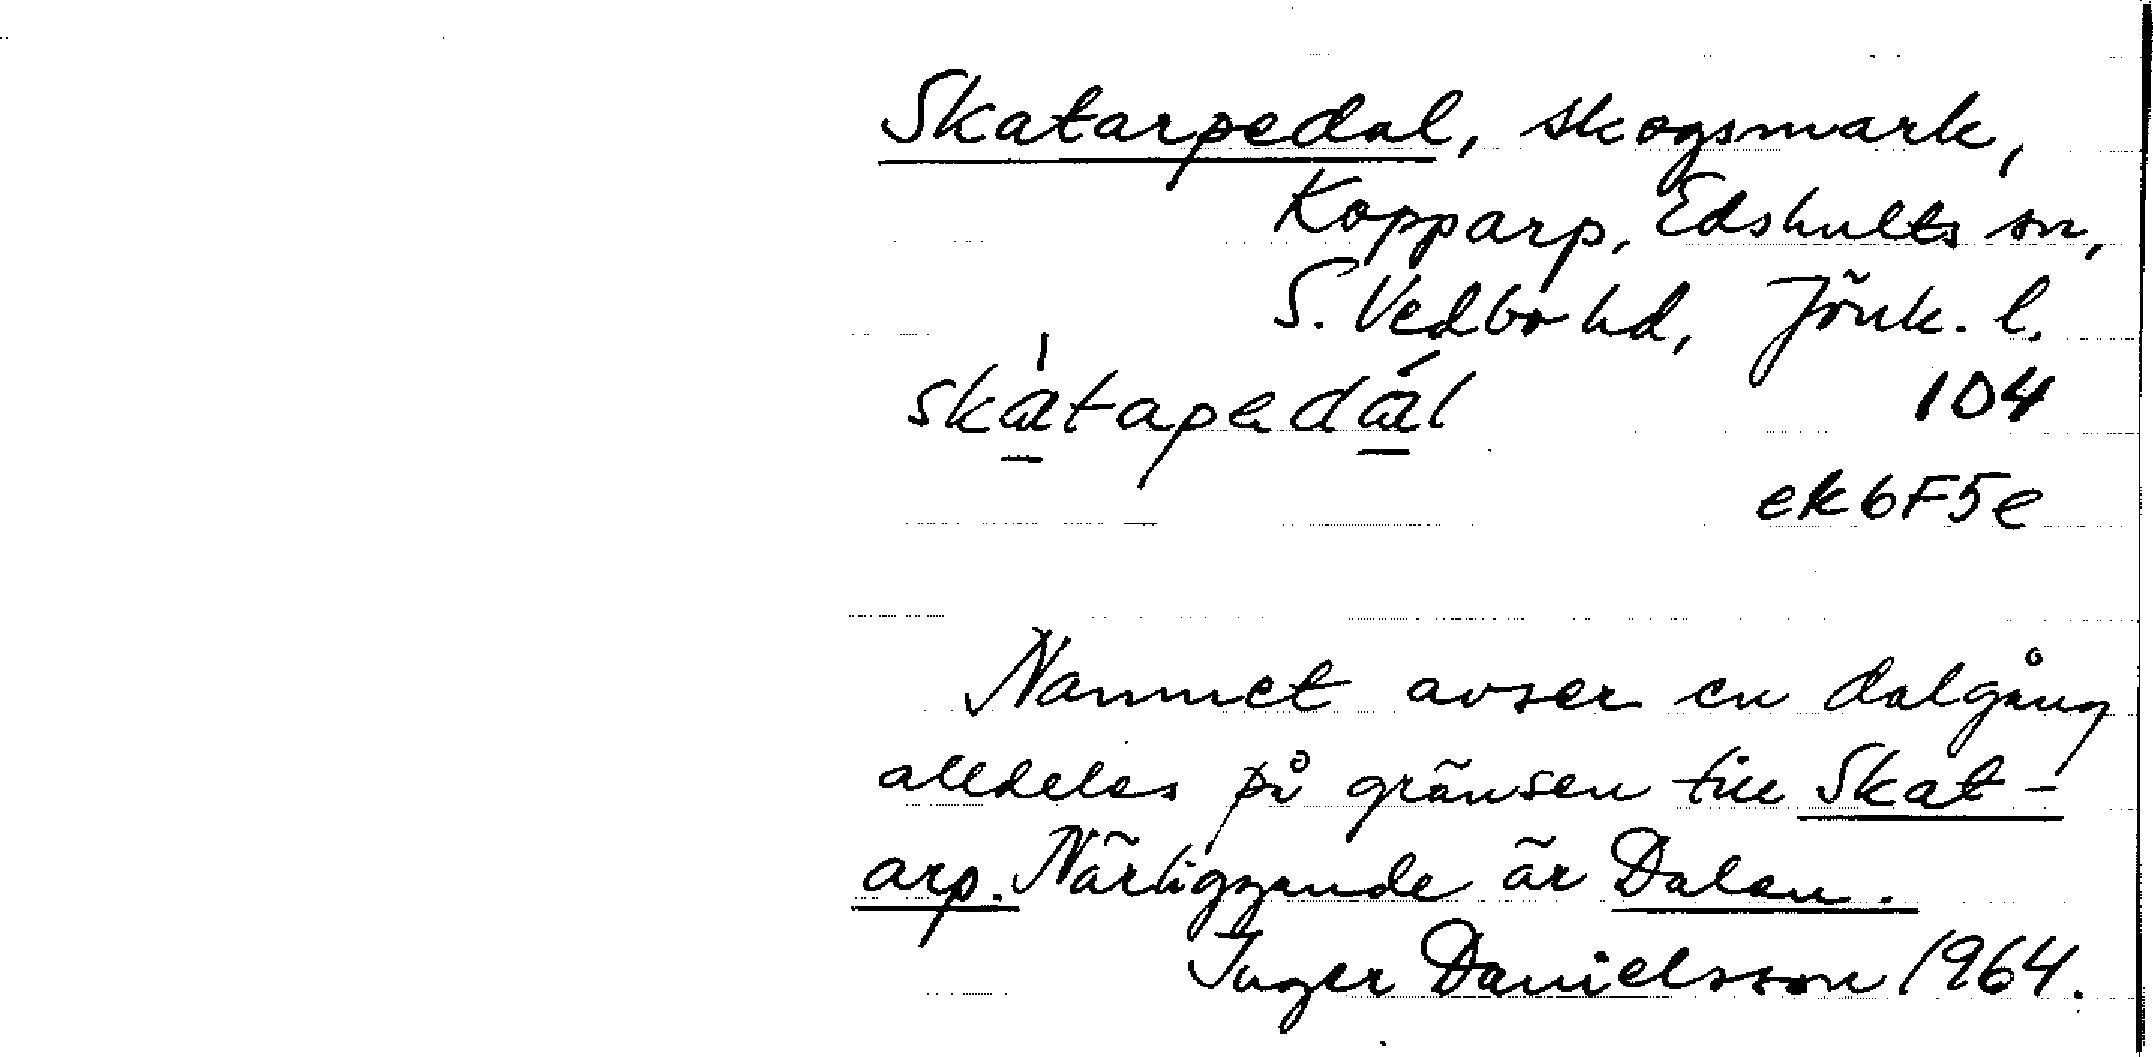 Skatarpedal, skogsmark,
Kopparp, Edshults sn,
S. Vedbo hd, Jönk. l.
skàtapedál 104
ek6F5e
Namnet avser en dalgång
alldeles på gränsen till Skat-
arp. Närliggande är Dalen.
Inger Danielsson 1964.